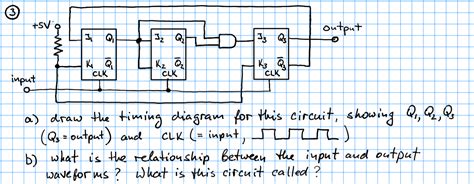 ③
+5V
output
J₁ Q₁ J₂ Q₂ J₃ Q₃
K₁ Q̄₁ K₂ Q̄₂ K₃ Q̄₃
CLK CLK CLK
input
a) draw the timing diagram for this circuit, showing Q₁, Q₂, Q₃
(Q₃ = output) and CLK (= input, )
b) what is the relationship between the input and output
waveforms? What is this circuit called?